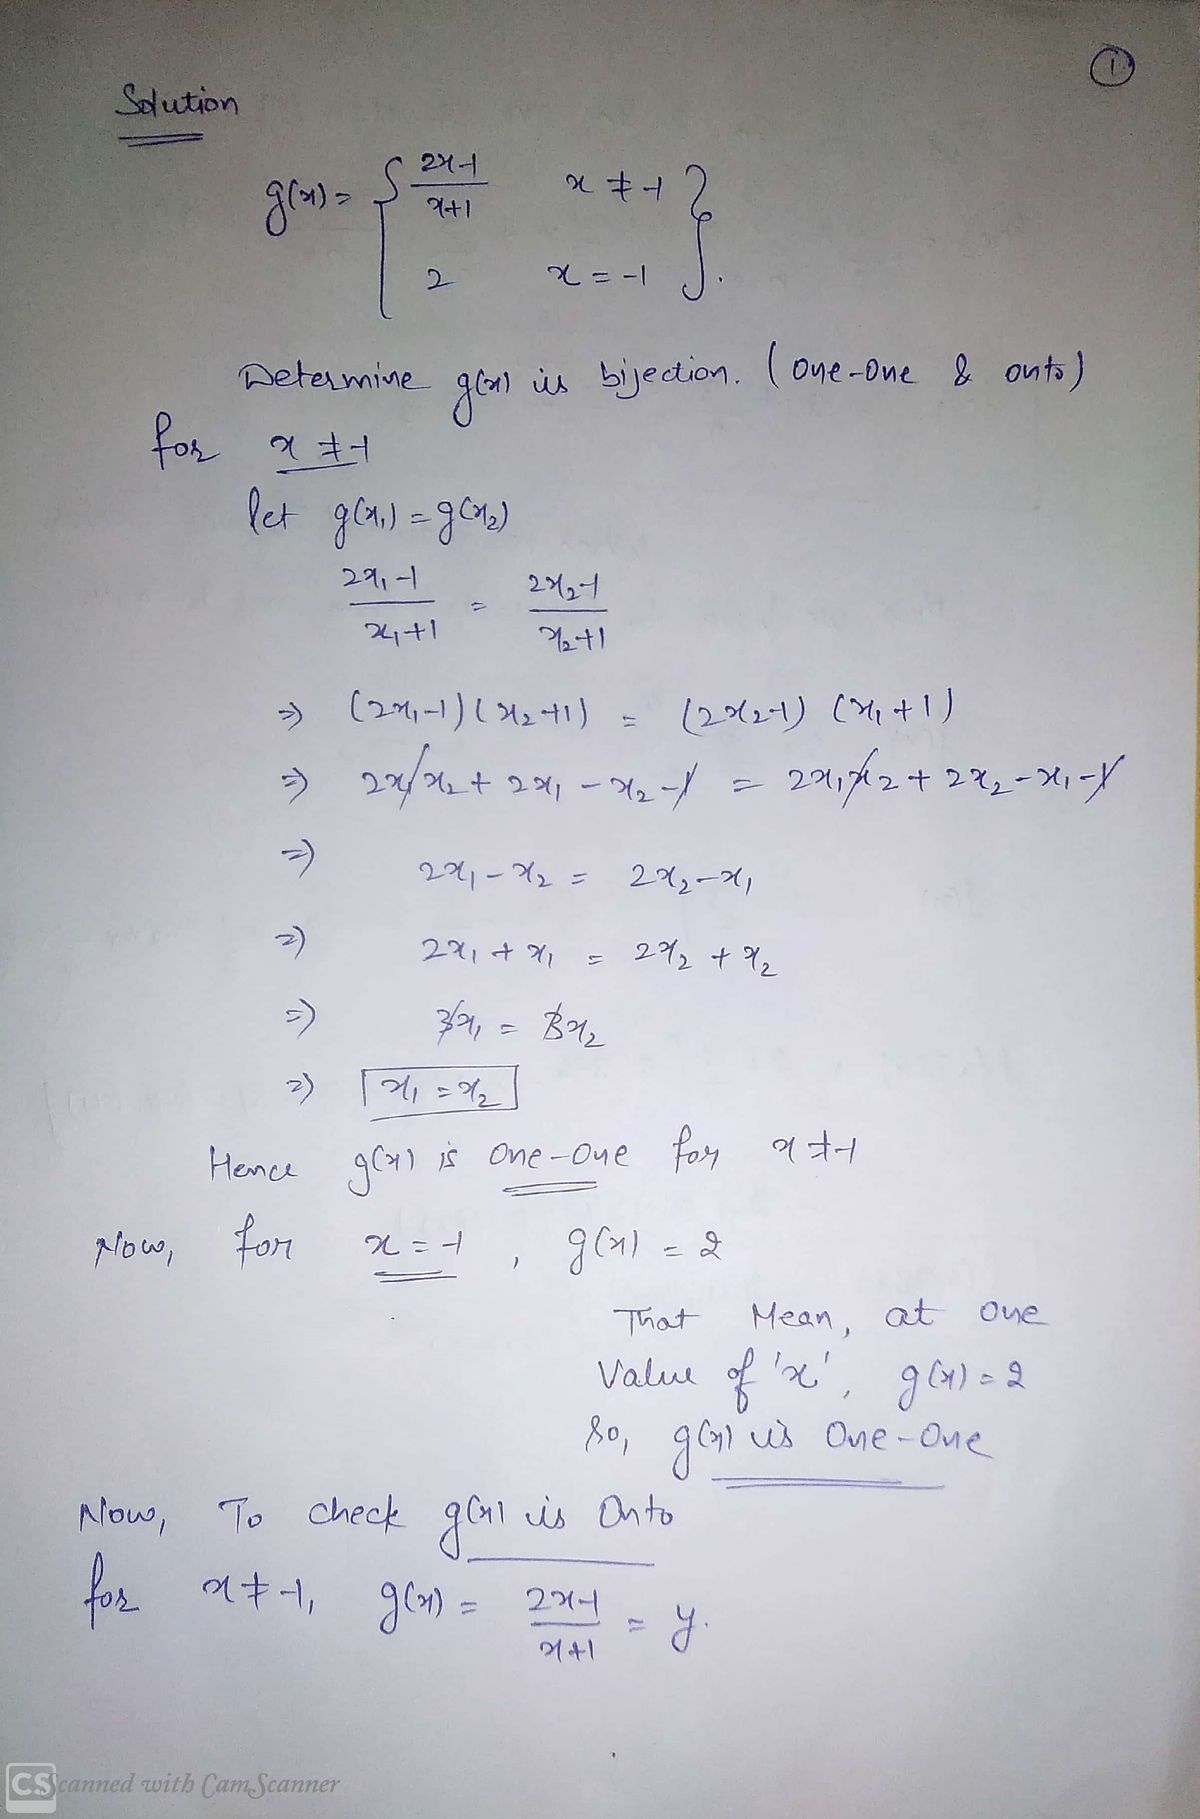 ①
Solution
g(x) = { (2x-1)/(x+1)   x ≠ -1
2   x = -1 }.
Determine g(x) is bijection. (one-one & onto)
for x ≠ -1
let g(x₁) = g(x₂)
(2x₁-1)/(x₁+1) = (2x₂-1)/(x₂+1)
⇒ (2x₁-1)(x₂+1) = (2x₂-1)(x₁+1)
⇒ 2x₁x₂ + 2x₁ - x₂ - 1 = 2x₁x₂ + 2x₂ - x₁ - 1
⇒ 2x₁ - x₂ = 2x₂ - x₁
⇒ 2x₁ + x₁ = 2x₂ + x₂
⇒ 3x₁ = 3x₂
⇒ x₁ = x₂
Hence g(x) is one-one for x ≠ -1
Now, for x = -1, g(x) = 2
That Mean, at one
Value of 'x', g(x) = 2
So, g(x) is One-One
Now, To check g(x) is Onto
for x ≠ -1, g(x) = (2x-1)/(x+1) = y.
CS Scanned with CamScanner